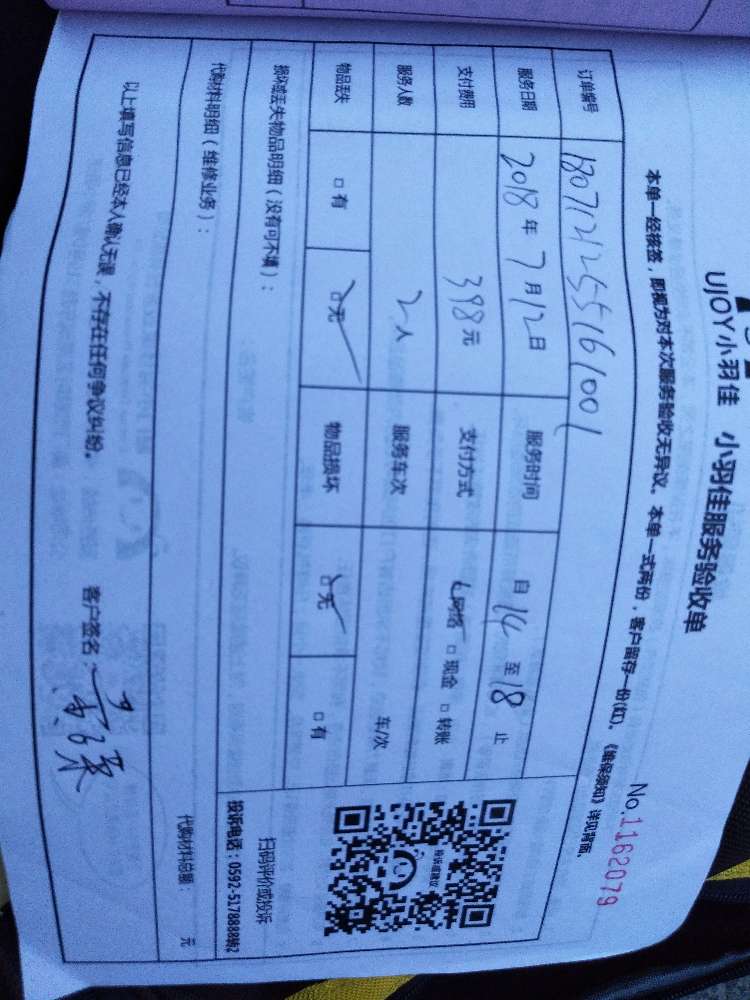 UJOY小羽佳 小羽佳服务验收单
No.1162079
本单一经核签，即视为对本次服务验收无异议。本单一式两份，客户留存一份(红)。《维保须知》详见背面。
订单编号 1807121255161001
服务日期 2018年7月12日 服务时间 自14至18止
支付费用 398元 支付方式 □网络 □现金 □转账
服务人数 2人 服务车次 车/次
物品丢失 □有 □无 物品损坏 □无 □有
损坏或丢失物品明细（没有可不填）：
投诉或建议
扫码评价或投诉
投诉电话：0592-5178888转2
代购材料明细（维修业务）：
代购材料总额： 元
以上填写信息已经本人确认无误，不存在任何争议纠纷。 客户签名：